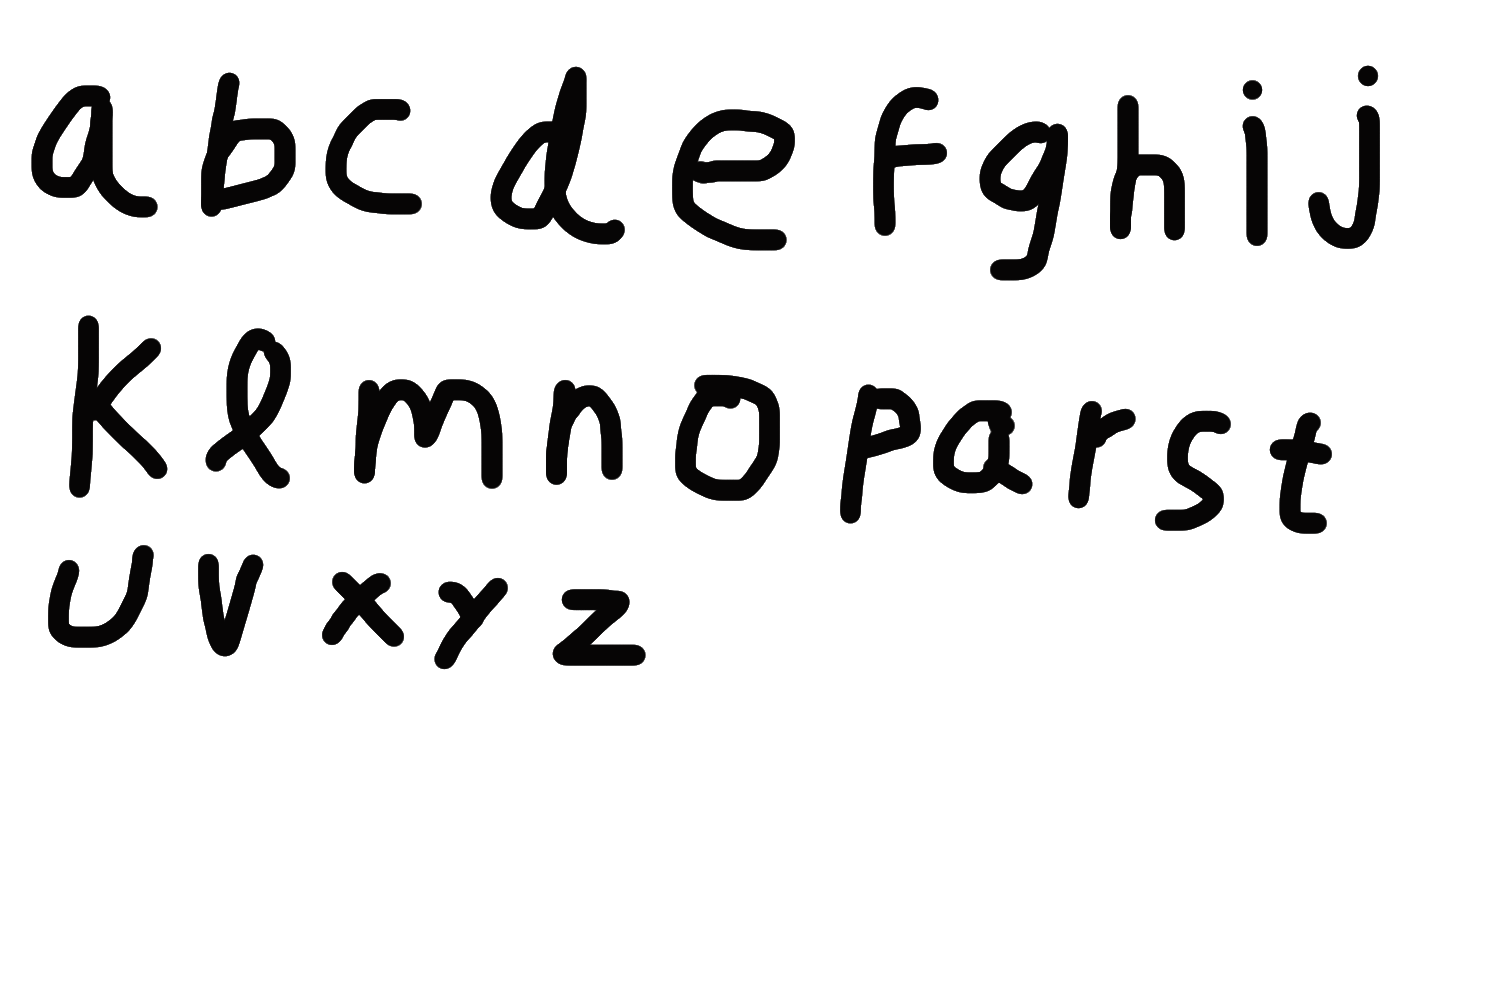 a b c d e f g h i j
k l m n o p a r s t
u v x y z